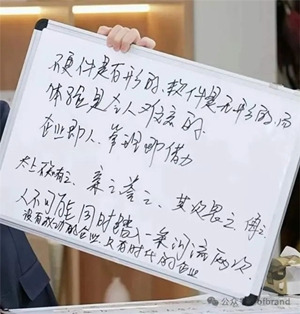 硬件是有形的，软件是无形的，而
体验是令人难忘的。
企业即人，管理即借力
太上不知有之，亲之誉之，其次畏之
人不可能同时踏入一条河流两次
没有成功的企业，只有时代的企业
公众号
brand